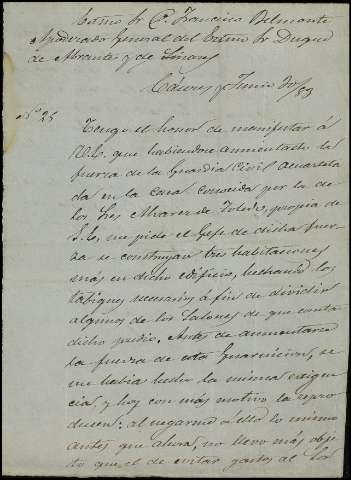 Exmo Sr D. Francisco Belmonte
Apoderado General del Exmo Sr Duque
de Abrantes y de Linares
Cáceres y Junio 30/83
Nº 25
Tengo el honor de manifestar á
V.E. que habiendose aumentado la
fuerza de la Guardia Civil acuartela
da en la casa conocida por la de
los Sres Alvarez de Toledo, propia de
S.E., me pide el Gefe de dicha fuer
za se construyan tres habitaciones
más en dicho edificio, hechando los
tabiques necesarios á fin de dividir
algunos de los Salones de que consta
dicho predio. Antes de aumentarse
la fuerza de esta Guarnicion, se
me habia hecho la misma exigen
cia, y hoy con más motivo la repro
ducen: al negarme á ello lo mismo
antes que ahora, no llevo más obje
to que el de evitar gastos al Sor